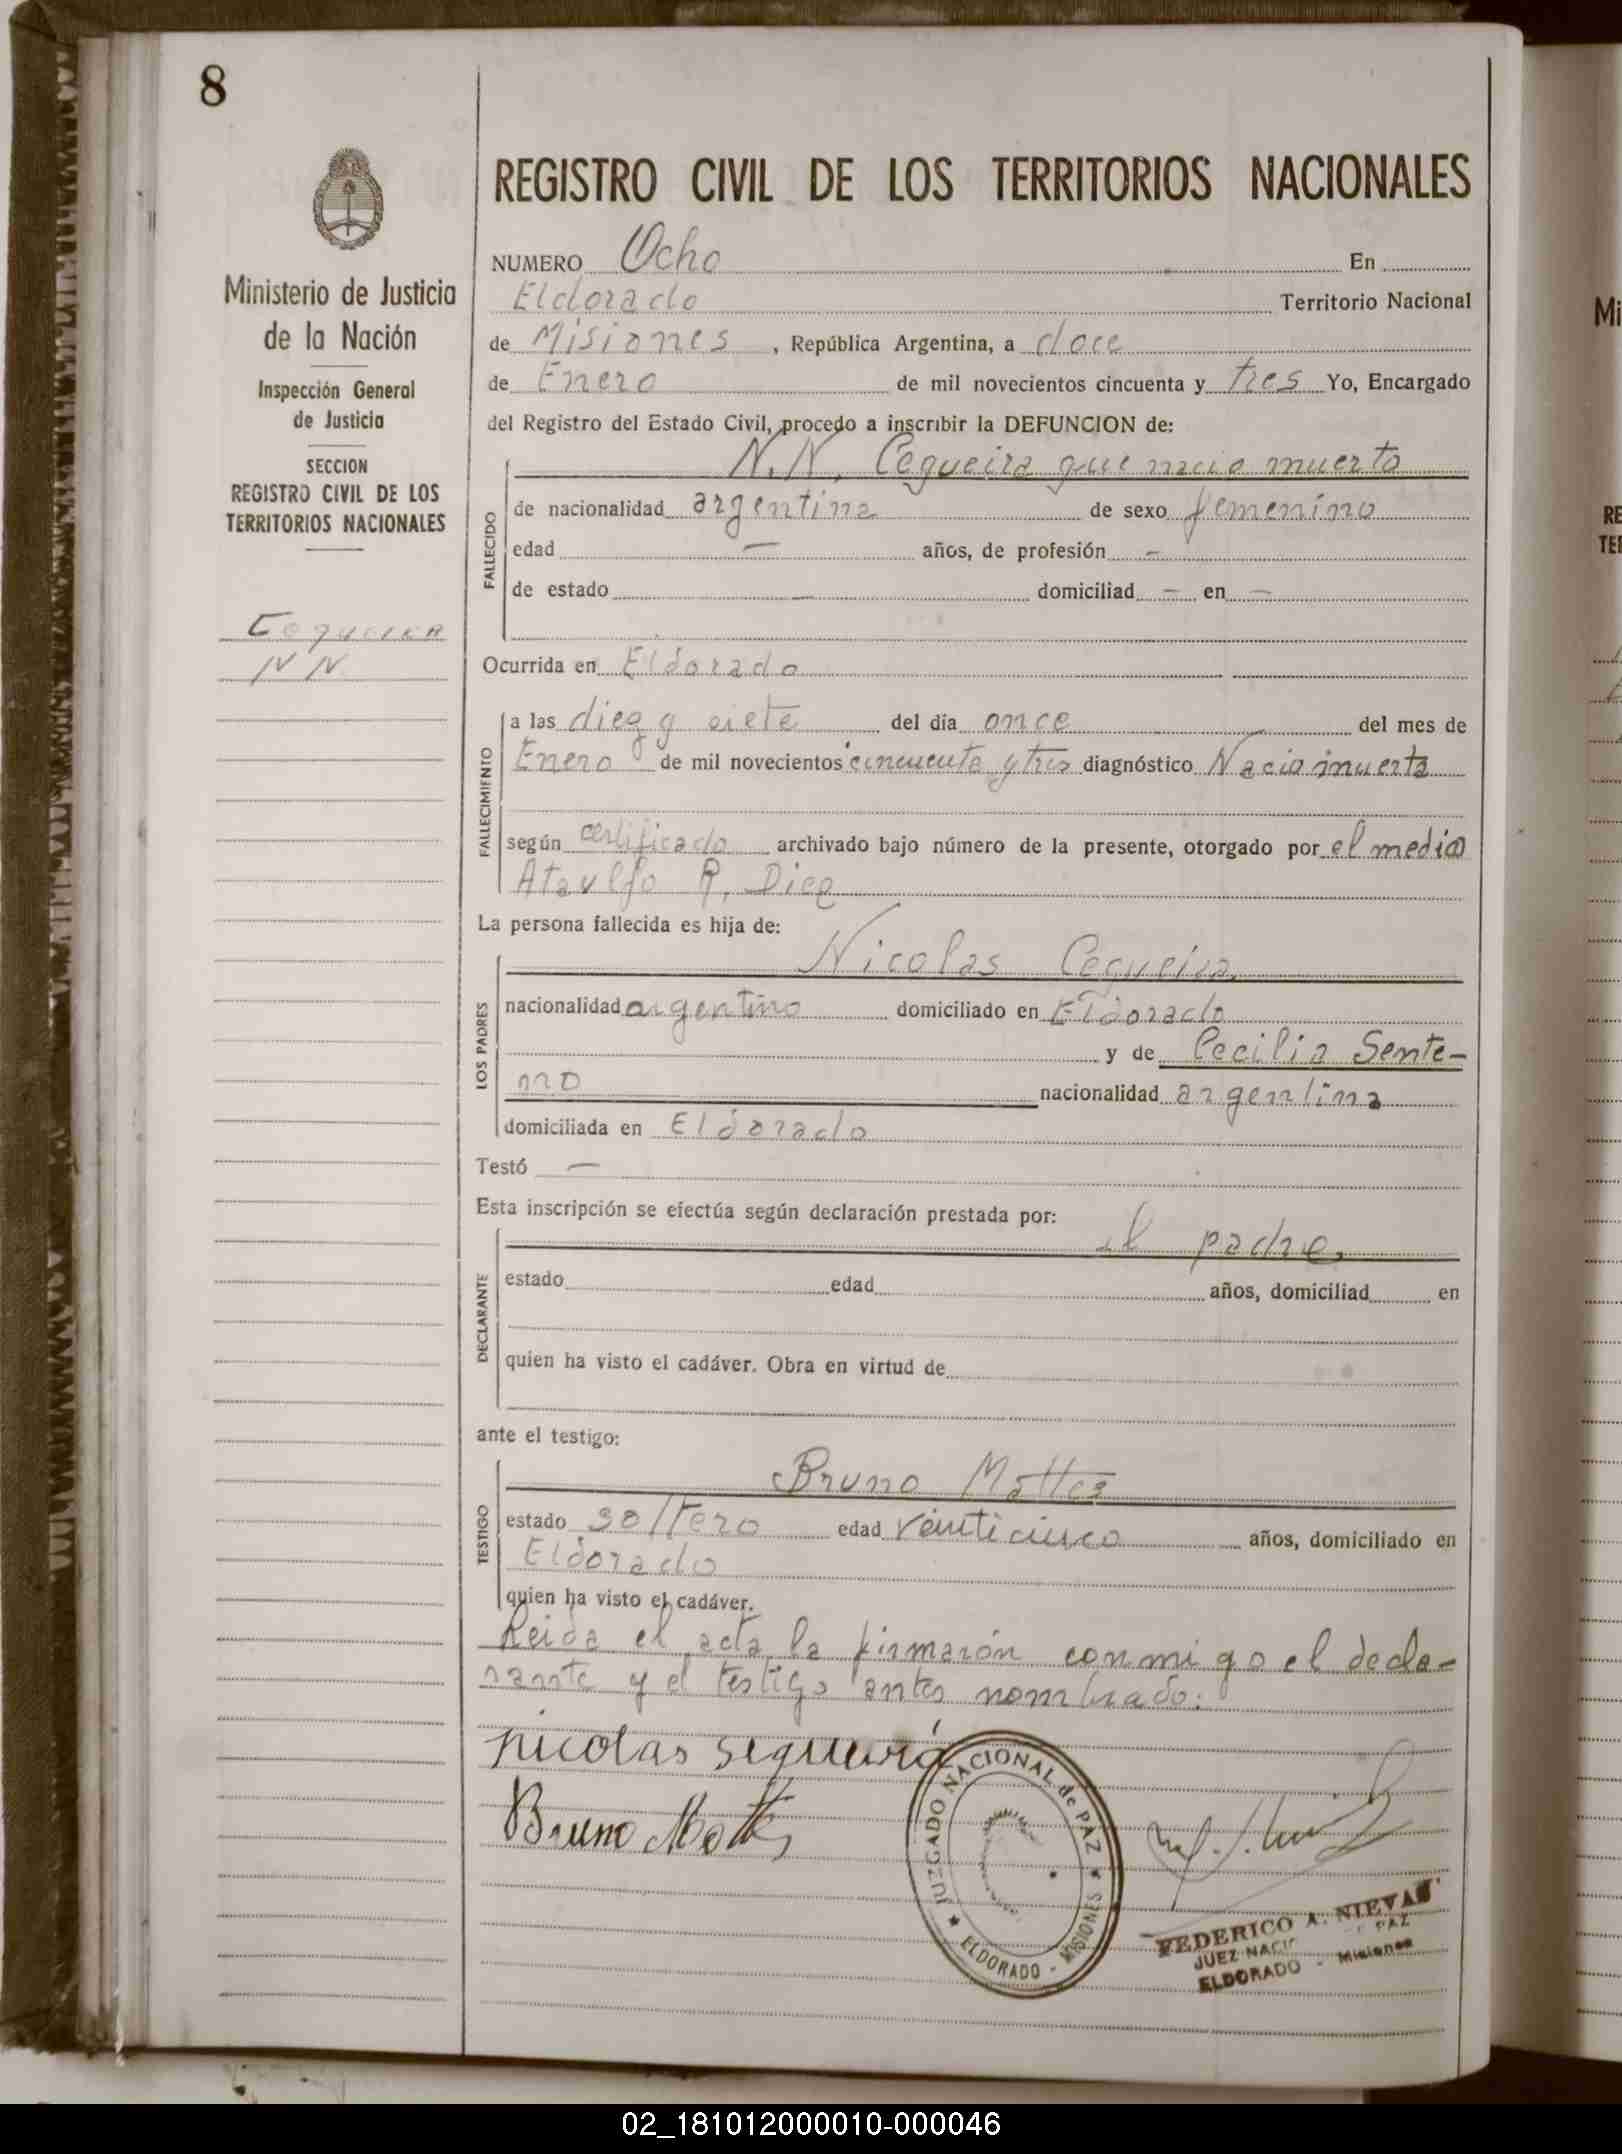 8
REGISTRO CIVIL DE LOS TERRITORIOS NACIONALES
Ministerio de Justicia
de la Nación
Inspección General
de Justicia
SECCION
REGISTRO CIVIL DE LOS
TERRITORIOS NACIONALES
Cequeira
N N
NUMERO Ocho En
Eldorado Territorio Nacional
de Misiones, República Argentina, a doce
de Enero de mil novecientos cincuenta y tres Yo, Encargado
del Registro del Estado Civil, procedo a inscribir la DEFUNCION de:
N.N. Cequeira que nacio muerta
FALLECIDO
de nacionalidad argentina de sexo femenino
edad — años, de profesión —
de estado — domiciliad — en —
Ocurrida en Eldorado
FALLECIMIENTO
a las diez y siete del día once del mes de
Enero de mil novecientos cincuenta y tres diagnóstico Nacio muerta
según certificado archivado bajo número de la presente, otorgado por el medico
Ataulfo R. Diez
La persona fallecida es hija de:
LOS PADRES
Nicolas Cequeira
nacionalidad argentino domiciliado en Eldorado
y de Cecilia Sente-
no nacionalidad argentina
domiciliada en Eldorado
Testó —
Esta inscripción se efectúa según declaración prestada por:
DECLARANTE
el padre.
estado edad años, domiciliad en
quien ha visto el cadáver. Obra en virtud de
ante el testigo:
TESTIGO
Bruno Mattes
estado soltero edad veinticinco años, domiciliado en
Eldorado
quien ha visto el cadáver.
Leida el acta la firmarón conmigo el decla-
rante y el testigo antes nombrado.
nicolas sequeira
Bruno Mattes
JUZGADO NACIONAL de PAZ
ELDORADO - MISIONES
FEDERICO A. NIEVAS
JUEZ NACI PAZ
ELDORADO - Misiones
Mi
RE
TER
02_181012000010-000046